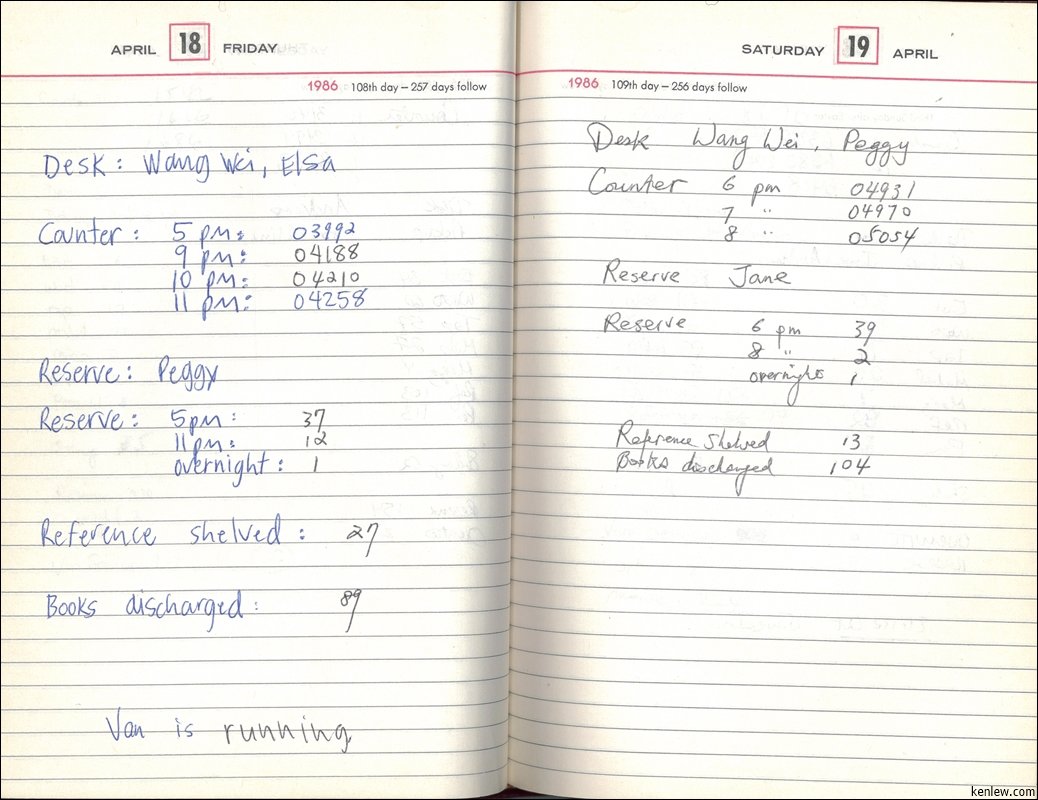 APRIL 18 FRIDAY
1986 108th day — 257 days follow
Desk: Wang Wei, Elsa
Counter: 5 pm: 03992
9 pm: 04188
10 pm: 04210
11 pm: 04258
Reserve: Peggy
Reserve: 5pm: 37
11pm: 12
overnight: 1
Reference shelved: 27
Books discharged: 89
Van is running
SATURDAY 19 APRIL
1986 109th day — 256 days follow
Desk Wang Wei, Peggy
Counter 6 pm 04931
7 " 04970
8 " 05054
Reserve Jane
Reserve 6 pm 39
8 " 2
overnights 1
Reference shelved 13
Books discharged 104
kenlew.com